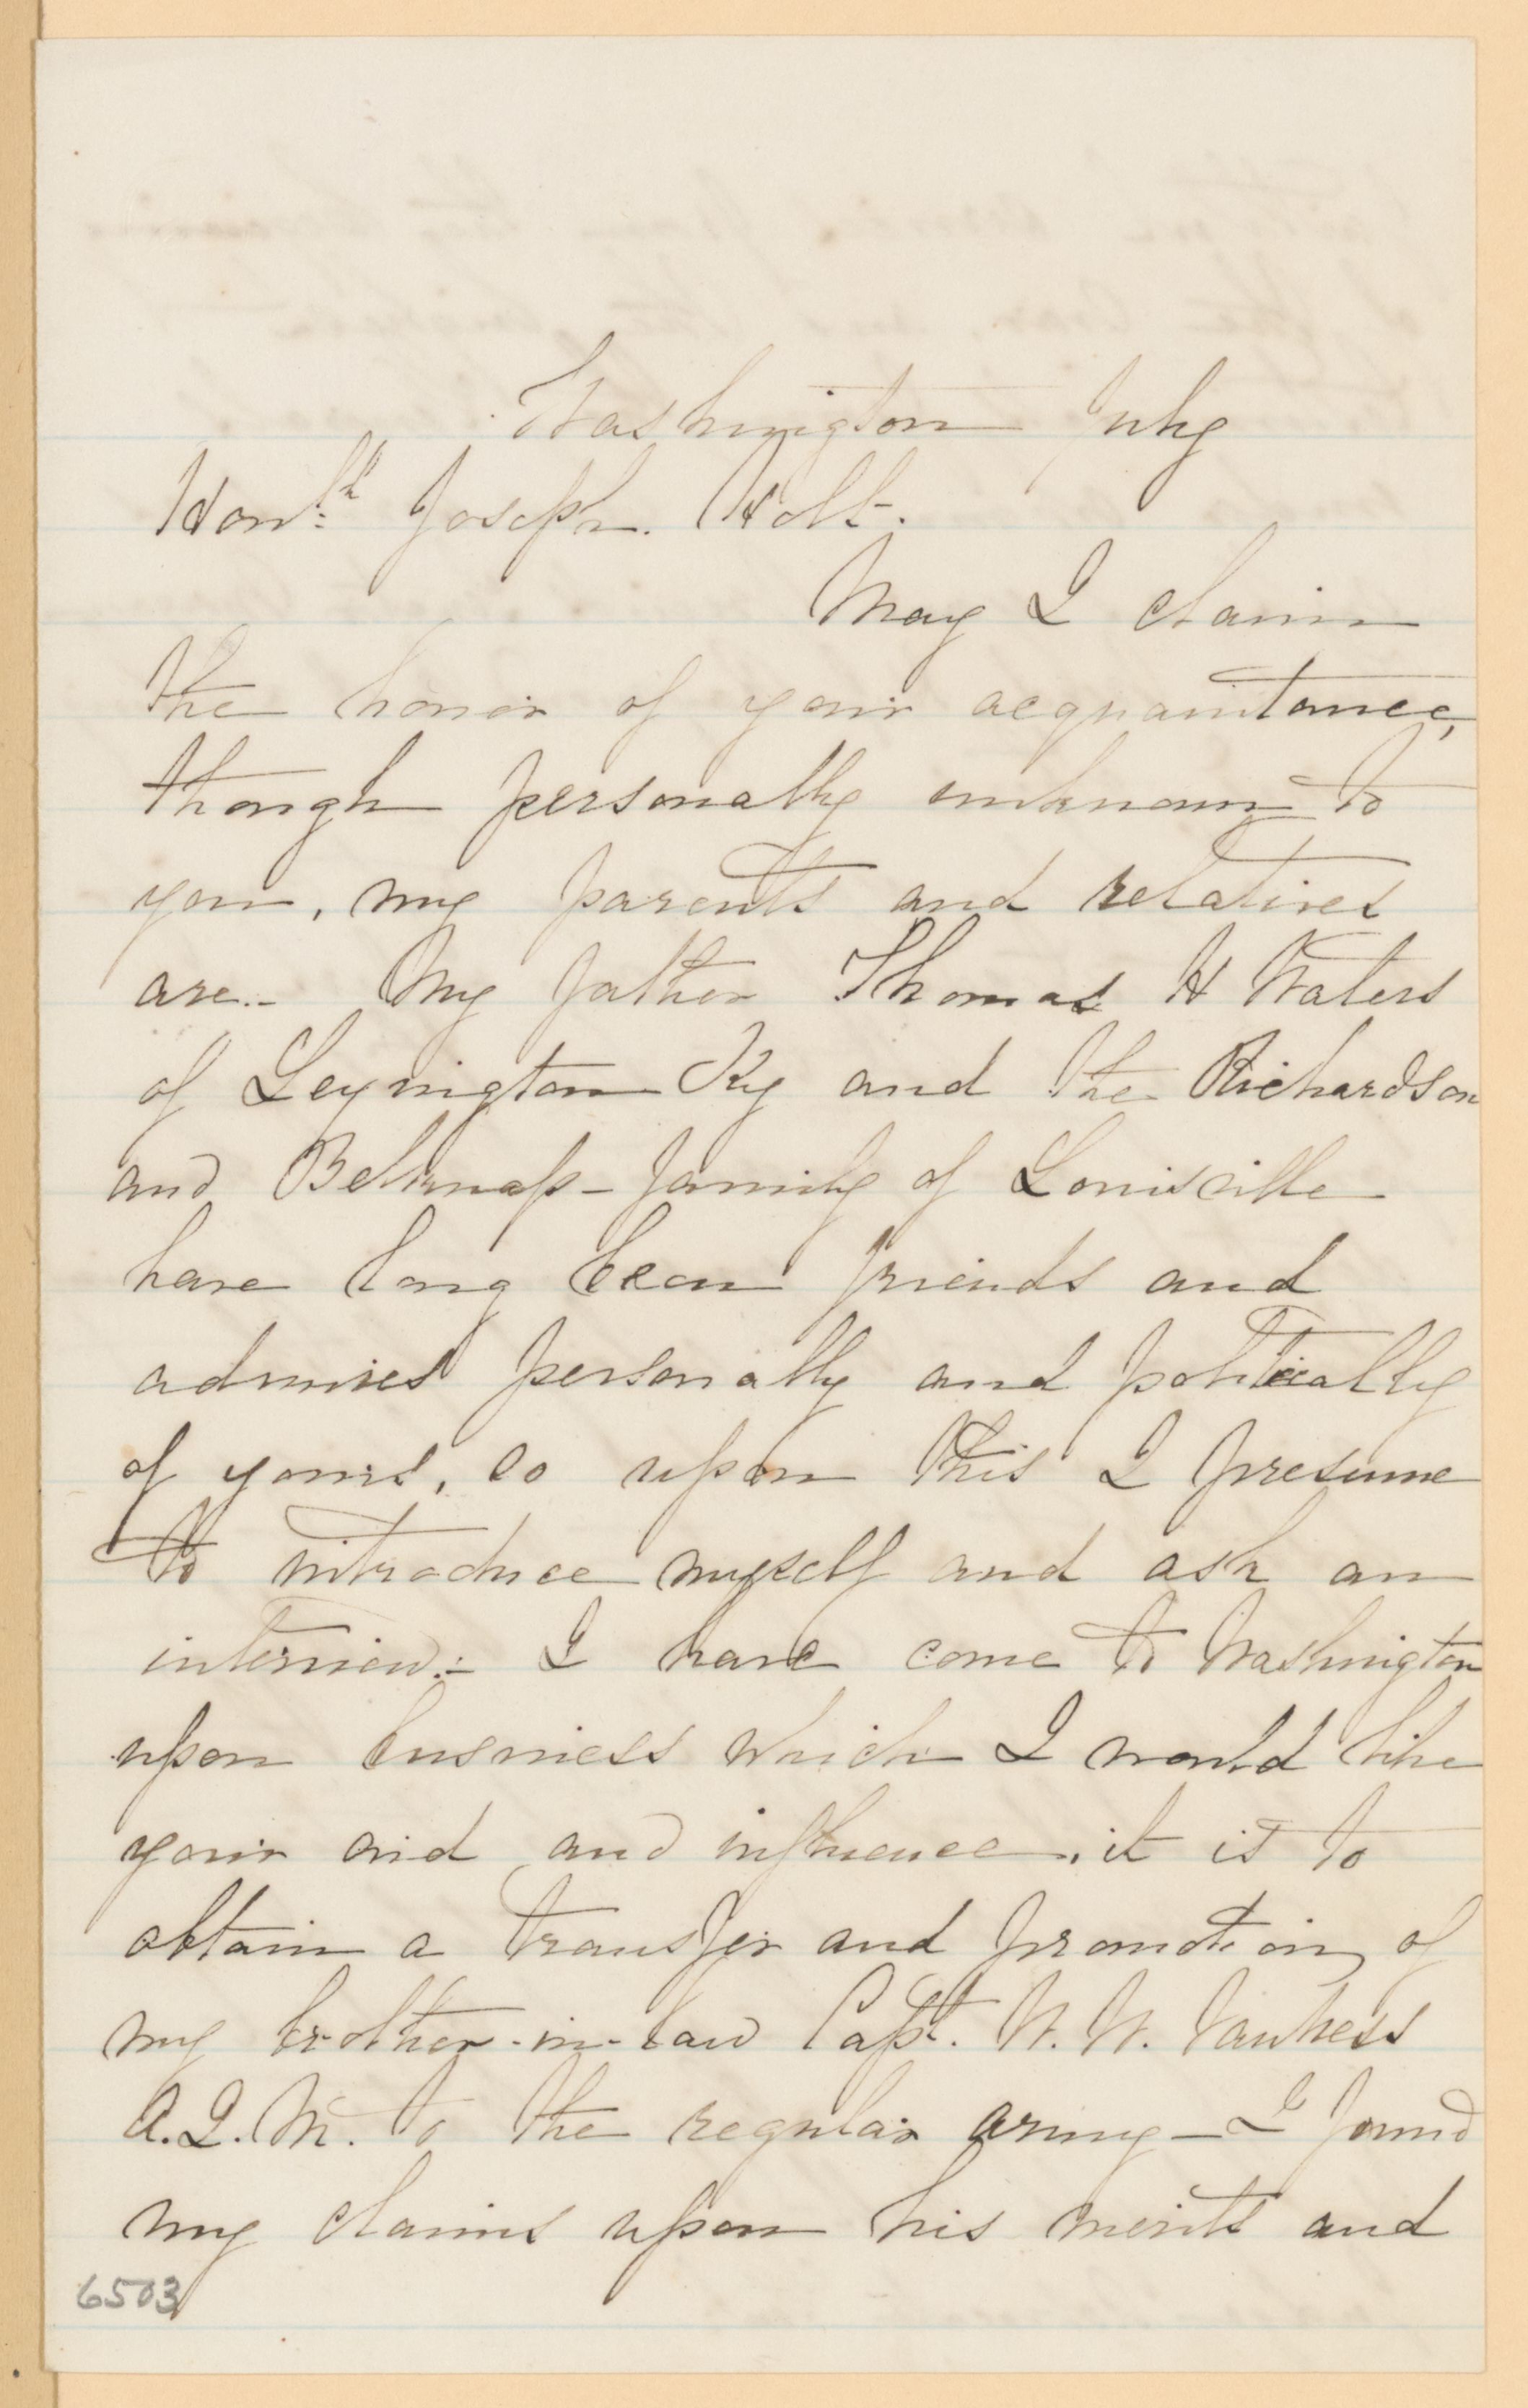 Washington July
Honble Joseph. Holt.
May I claim
the honor of your acquaintance,
though personally unknown to
you, my parents and relatives
are.- My father Thomas H Waters
of Lexington Ky and the Richardson
and Belknap - family of Louisville
have long been friends and
admires personally and politically
of yours, so upon this I presume
to introduce myself and ask an
interview.- I have come to Washington
upon business which I would like
your aid and influence, it is to
obtain a transfer and promotion of
my brother-in-law Capt. W. W. Van Ness
A.Q.M. to the regular army - I found
my claims upon his merits and
6503